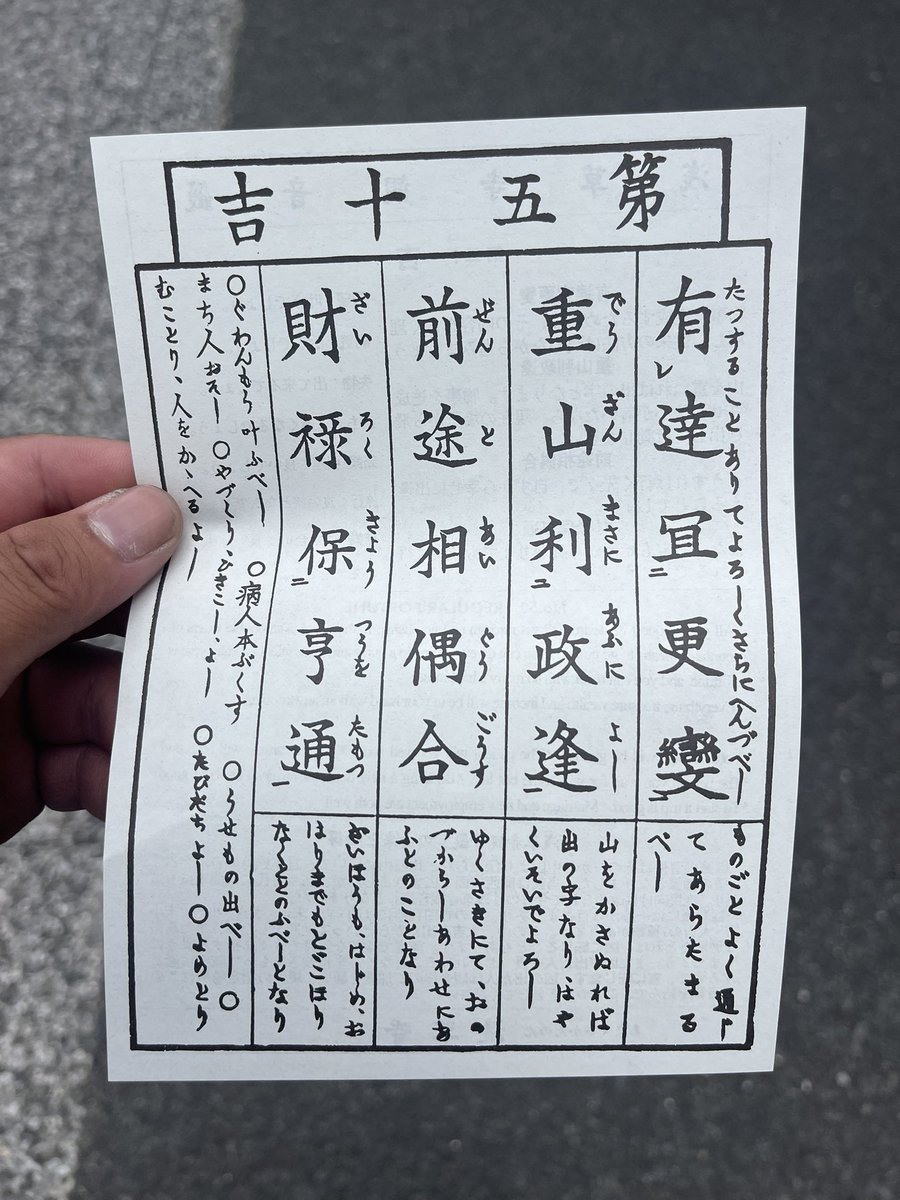 第五十吉
たつすることありてよろしくさらにへんづべし
有レ達冝二更變一
ものごとよく通じ
てあらたまる
べし
でうざんまさにあふによし
重山利二政逢一
山をかさぬれば
出の字なり、はや
くいそいでよろし
ぜんとあいぐうごうす
前途相偶合
ゆくさきにて、おの
づからしあわせにあ
ふとのことなり
ざいろくきようつうをたもつ
財禄保二亨通一
ざいほうも、はじめ、お
はりまでもとどこほり
なくととのふべしとなり
○ぐわんもう叶ふべし ○病人本ぶくす ○うせもの出べし ○
まち人おそし ○やづくり、ひきこし、よし ○たびだちよし ○よめとり
むことり、人をかゝへるよし